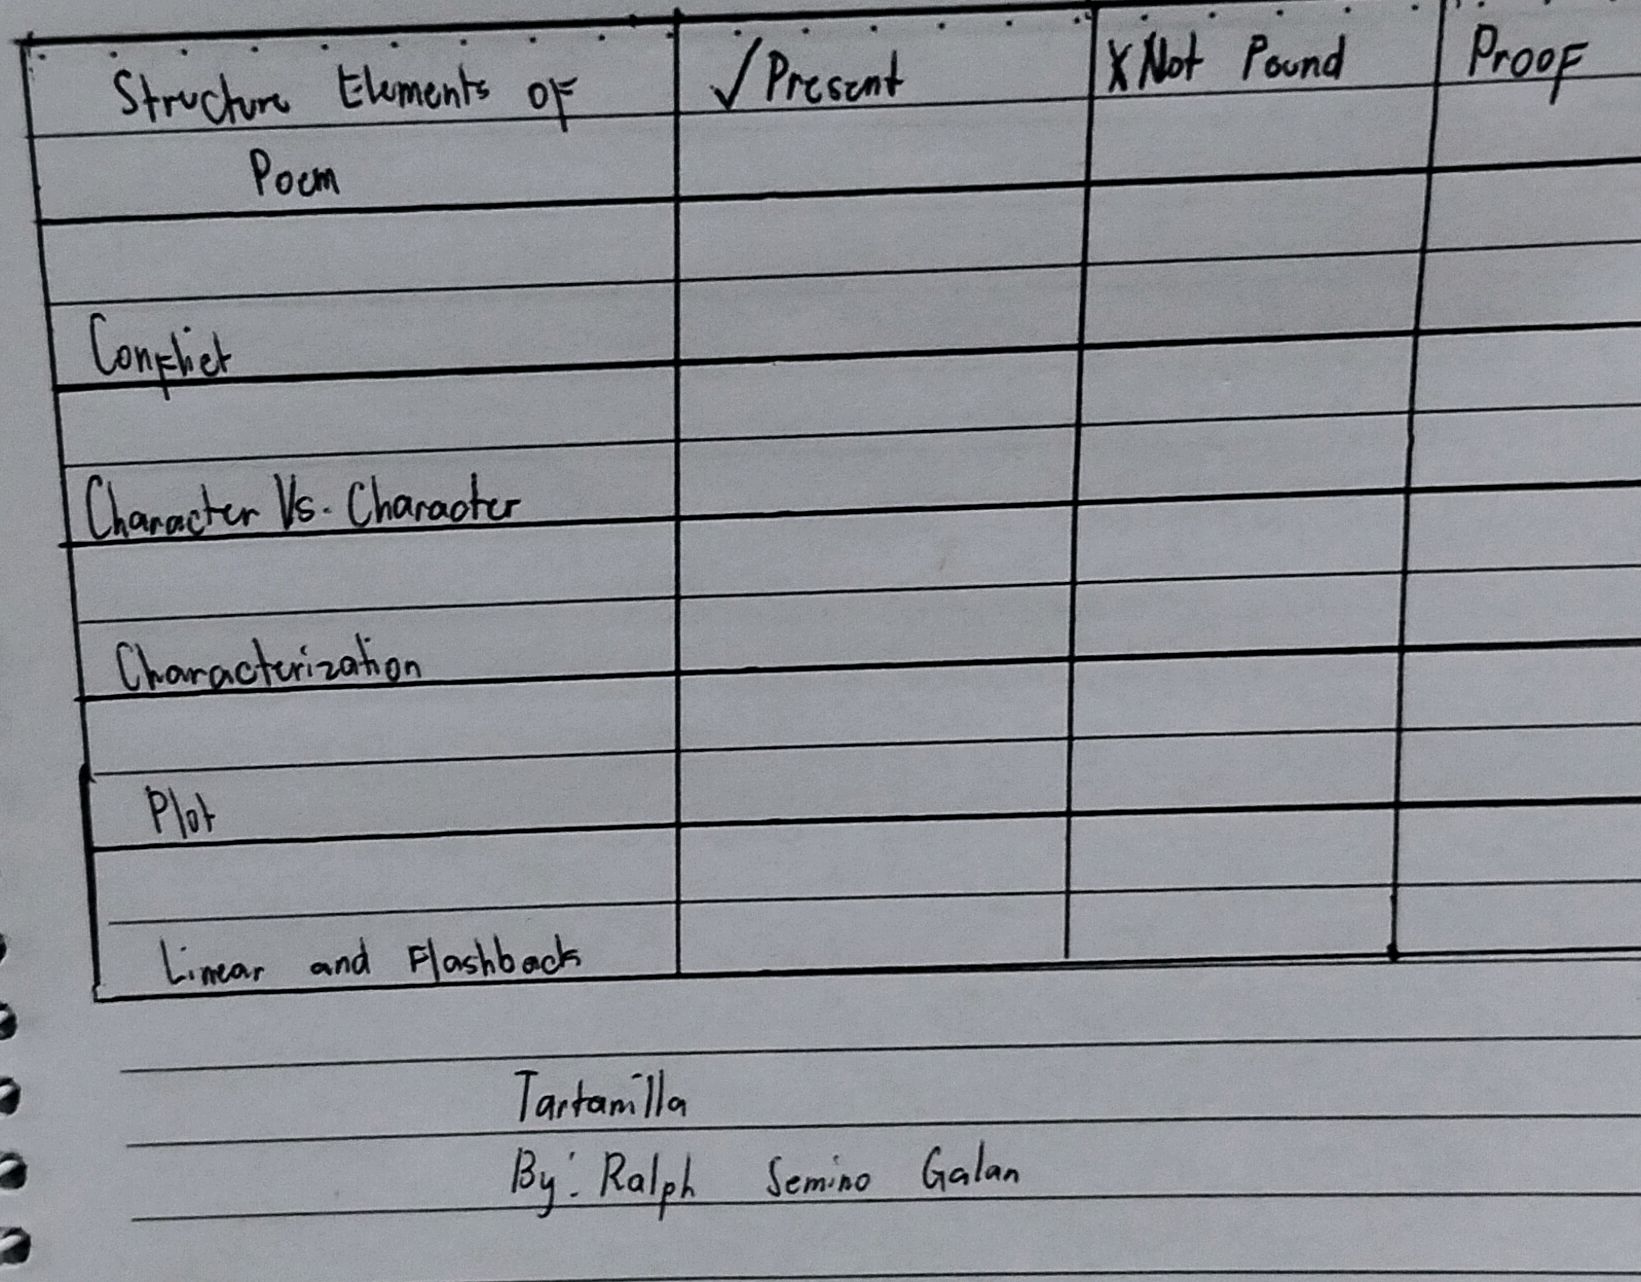 Structure Elements of ✓Present X Not Pound Proof
Poem
Conflict
Character Vs. Character
Characterization
Plot
Linear and Flashback
Tartanilla
By: Ralph Semino Galan